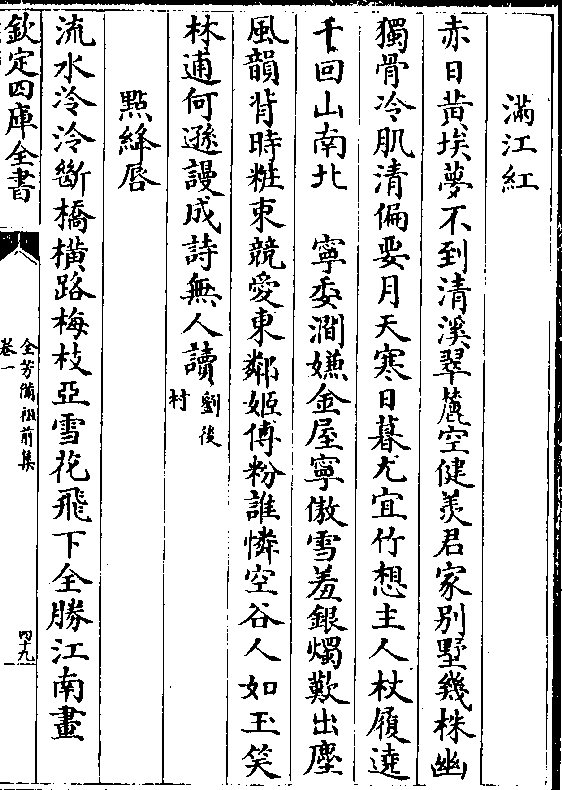 滿江紅
赤日黃埃夢不到清溪翠麓空健羨君家別墅幾株幽
獨骨冷肌清偏要月天寒日暮尤宜竹想主人杖履遶
千回山南北　寧委澗嫌金屋寧傲雪羞銀燭歎出塵
風韻背時粧束競愛東鄰姬傅粉誰憐空谷人如玉笑
林逋何遜謾成詩無人讀劉後村
點絳唇
流水泠泠斷橋橫路梅枝亞雪花飛下全勝江南畫
欽定四庫全書
全芳備祖前集
卷一
四十九